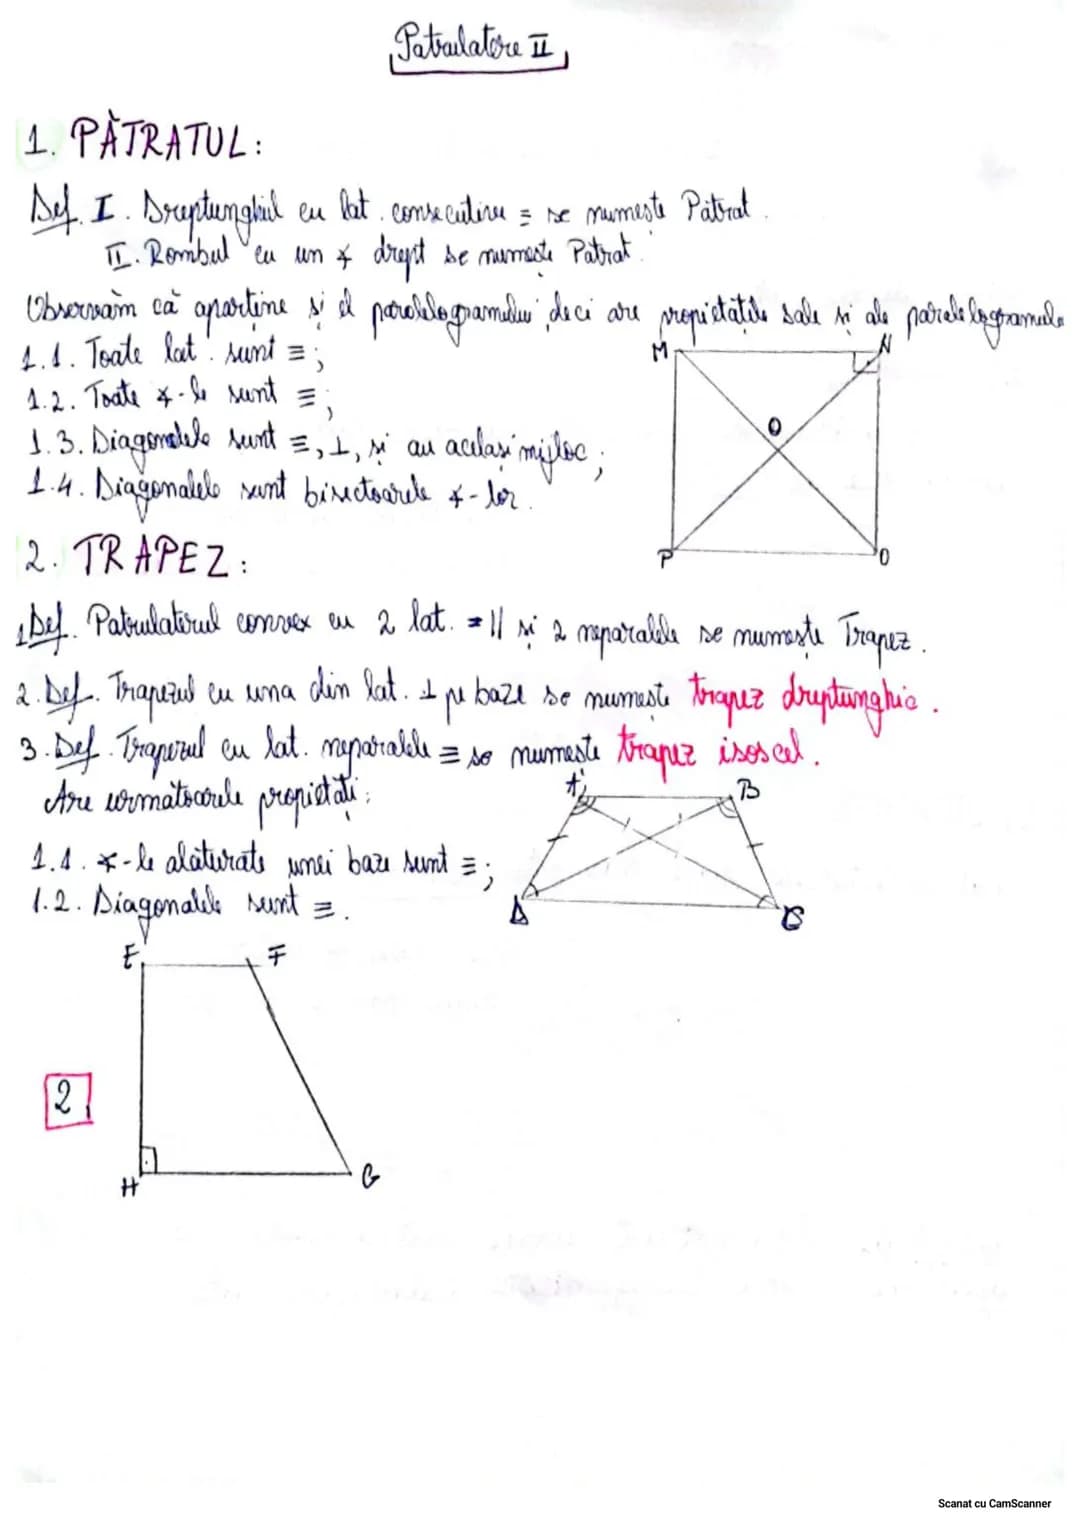 Patrulatere II
1. PĂTRATUL:
Def. I. Dreptunghiul cu lat. consecutive = se numește Pătrat.
II. Rombul cu un ∢ drept se numește Pătrat.
Observăm că aparține și el paralelogramului, deci are propietățile sale și ale paralelogramului
1.1. Toate lat. sunt ≡;
1.2. Toate ∢-le sunt ≡;
1.3. Diagonalele sunt ≡, ⊥, și au același mijloc;
1.4. Diagonalele sunt bisectoarele ∢-lor.
M N
O
P O
2. TRAPEZ:
1 Def. Patrulaterul convex cu 2 lat. = || și 2 neparalele se numește Trapez.
2. Def. Trapezul cu una din lat. ⊥ pe baze se numește trapez dreptunghic.
3. Def. Trapezul cu lat. neparalele ≡ se numește trapez isoscel.
Are următoarele propietăți:
A B
1.1. ∢-le alăturate unei baze sunt ≡;
1.2. Diagonalele sunt ≡.
D C
E F
2
H G
Scanat cu CamScanner